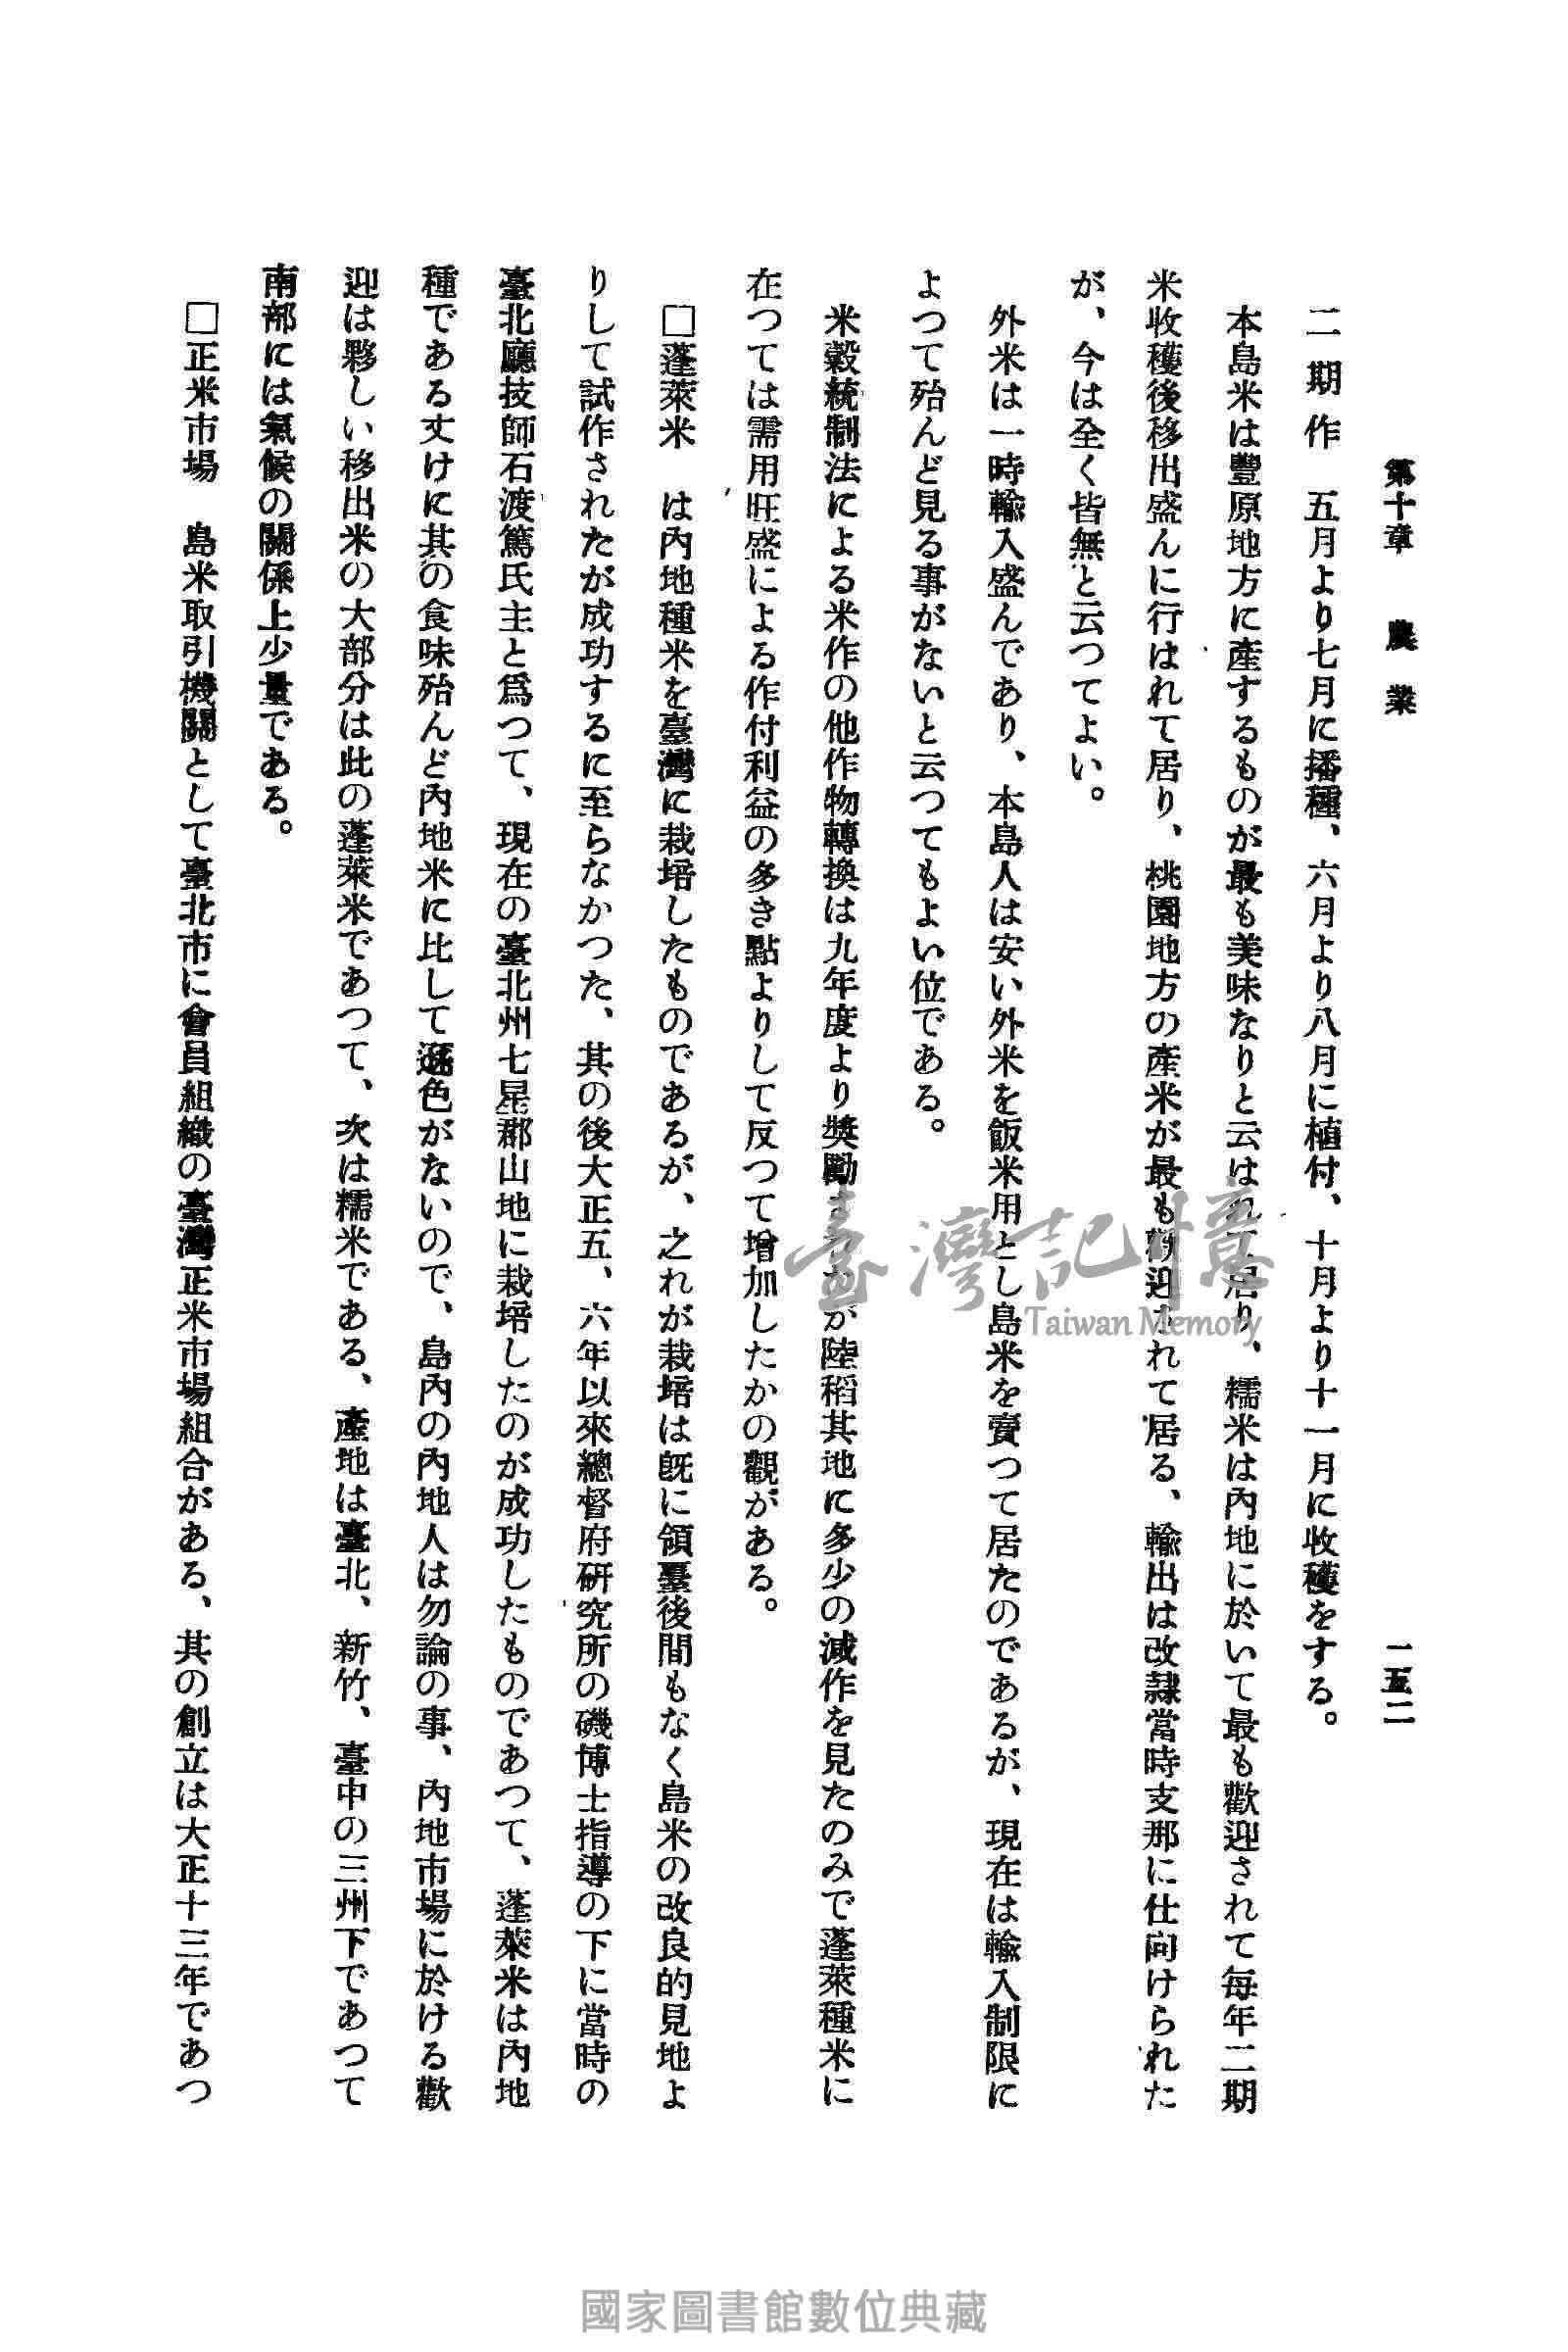 第十章 農業 一五二
二期作 五月より七月に播種、六月より八月に植付、十月より十一月に收穫をする。
本島米は豐原地方に產するものが最も美味なりと云はれて居り、糯米は內地に於いて最も歡迎されて每年二期
米收穫後移出盛んに行はれて居り、桃園地方の產米が最も歡迎されて居る、輸出は改隸當時支那に仕向けられた
が、今は全く皆無と云つてよい。
外米は一時輸入盛んであり、本島人は安い外米を飯米用とし島米を賣つて居たのであるが、現在は輸入制限に
よつて殆んど見る事がないと云つてもよい位である。
米穀統制法による米作の他作物轉換は九年度より獎勵されたが陸稻其地に多少の減作を見たのみで蓬萊種米に
在つては需用旺盛による作付利益の多き點よりして反つて增加したかの觀がある。
□蓬萊米 は內地種米を臺灣に栽培したものであるが、之れが栽培は旣に領臺後間もなく島米の改良的見地よ
りして試作されたが成功するに至らなかつた、其の後大正五、六年以來總督府硏究所の磯博士指導の下に當時の
臺北廳技師石渡篤氏主と爲つて、現在の臺北州七星郡山地に栽培したのが成功したものであつて、蓬萊米は內地
種である丈けに其の食味殆んど內地米に比して遜色がないので、島內の內地人は勿論の事、內地市場に於ける歡
迎は夥しい移出米の大部分は此の蓬萊米であつて、次は糯米である、產地は臺北、新竹、臺中の三州下であつて
南部には氣候の關係上少量である。
□正米市場 島米取引機關として臺北市に會員組織の臺灣正米市場組合がある、其の創立は大正十三年であつ
臺灣記憶
Taiwan Memory
國家圖書館數位典藏